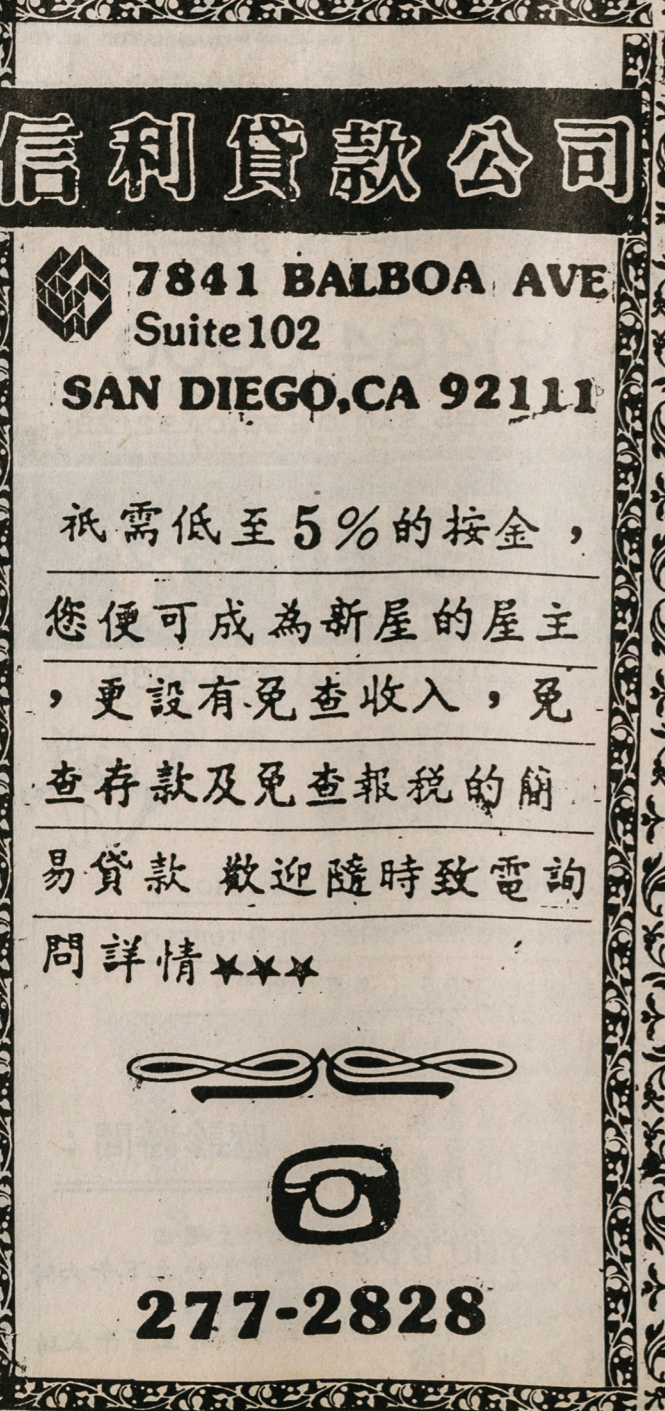 信利貸款公司
7841 BALBOA AVE
Suite 102
SAN DIEGO, CA 92111
祇需低至5%的按金，
您便可成為新屋的屋主
，更設有免查收入，免
查存款及免查報税的簡
易貸款 歡迎隨時致電詢
問詳情★★★
277-2828